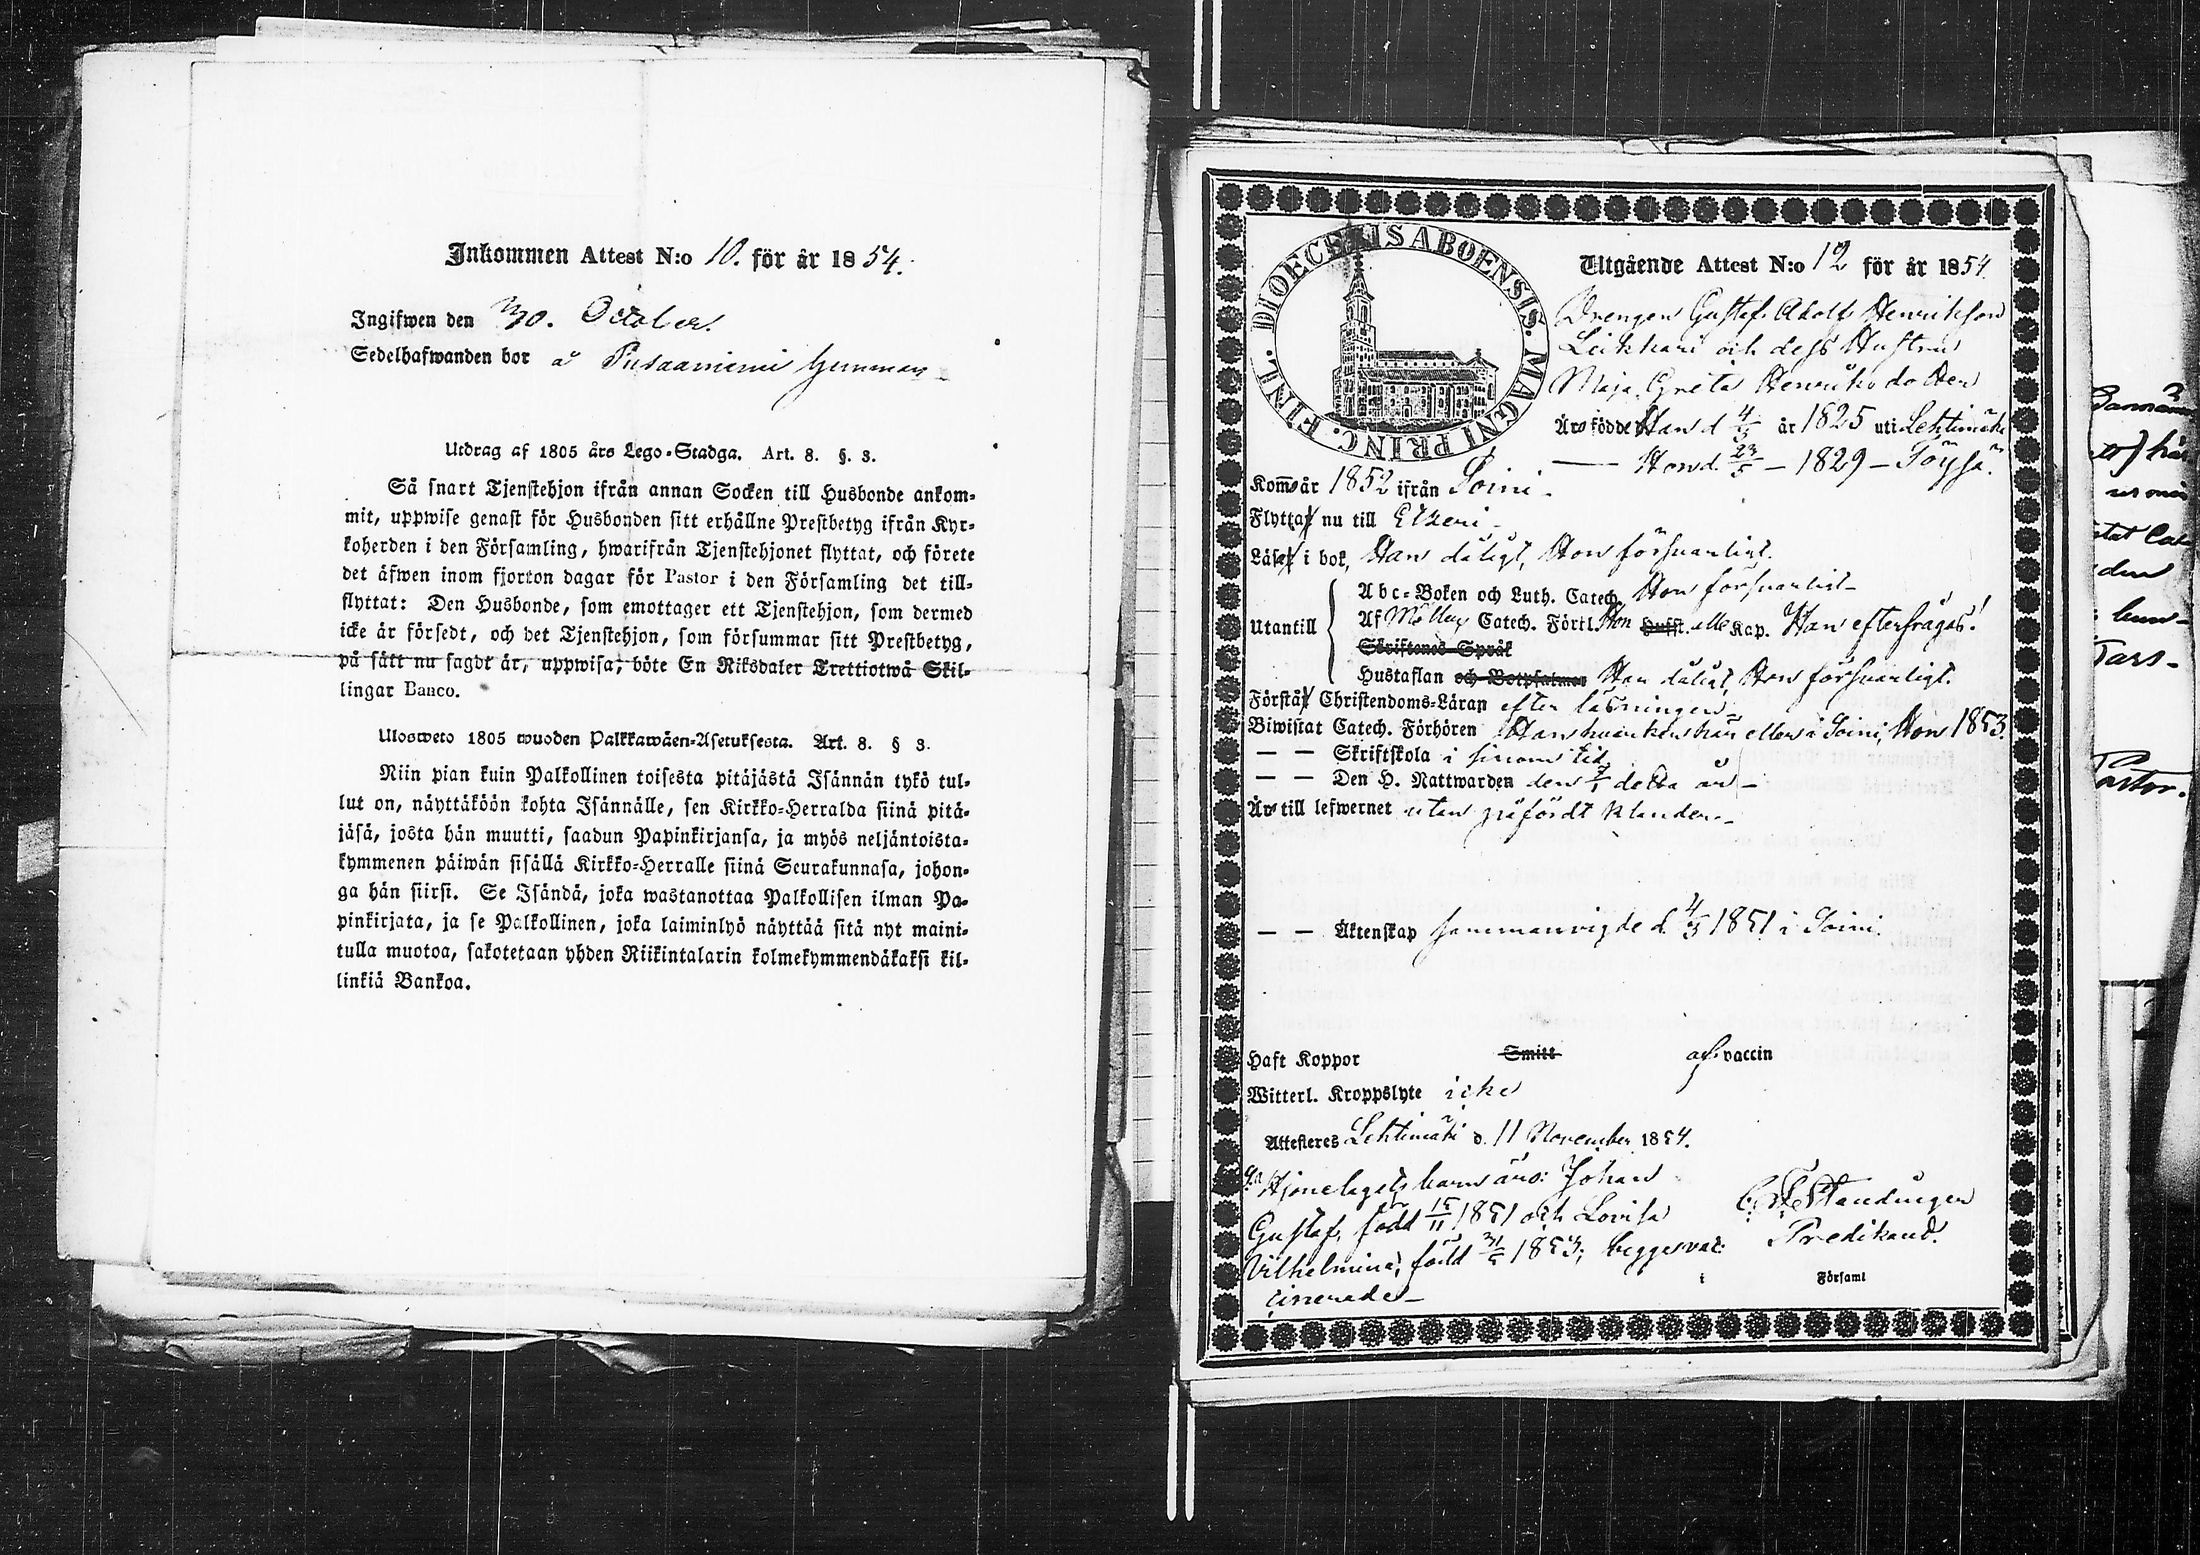 Inkommen Attest N:o 10. för år 1854.
Ingifwen den 30. October.
Sedelhafwanden bor å
Utdrag af 1805 års Lego-Stadga. Art. 8. §. 3.
Så snart Tjenstehjon ifrån annan Socken till Husbonde ankom-
mit, uppwise genast för Husbonden sitt erhållne Prestbetyg ifrån Kyr-
koherden i den Församling, hwarifrån Tjenstehjonet flyttat, och förete
det äfwen inom fjorton dagar för Pastor i den Församling det till-
flyttat: Den Husbonde, som emottager ett Tjenstehjon, som dermed
icke är försedt, och det Tjenstehjon, som försummar sitt Prestbetyg,
på sätt nu sagdt är, uppwisa, böte En Riksdaler Trettiotwå Skil-
lingar Banco.
Ulosweto 1805 wuoden Palkkawäen-Asetuksesta. Art. 8. § 3.
Niin pian kuin Palkollinen toisesta pitäjästä Isännän tykö tul-
lut on, näyttäköön kohta Isännälle, sen Kirkko-Herralda siinä pitä-
jäsä, josta hän muutti, saadun Papinkirjansa, ja myös neljäntoista-
kymmenen päiwän sisällä Kirkko-Herralle siinä Seurakunnasa, johon-
ga hän siirsi. Se Isändä, joka wastanottaa Palkollisen ilman Pa-
pinkirjata, ja se Palkollinen, joka laiminlyö näyttää sitä nyt maini-
tulla muotoa, sakotetaan yhden Riikintalarin kolmekymmendäkaksi kil-
linkiä Bankoa.
DIOECESIS ABOENSIS. MAGNI PRINC. FINL.
Utgående Attest N:o 12 för år 1854.
Drengen Gustaf Adolf Henriksson
Leikkari och dess Hustru
Maja Greta Henriks dotter
Äro födde Han d 4/3 år 1825 uti Lehtimäki
— Hon d. 23/5 — 1829 — Töysä.
Komo år 1852 ifrån Soini.
Flytta nu till Etseri
Läsa i bok, Han dåligt, Hon försvarligt.
Utantill
Abc-Boken och Luth. Catech. Hon försvarligt
Af Möllers Catech. Förkl. Hon Hufst. alla Kap. Han efterfrågas!
Skriftenes Språk
Hustaflan och Botpsalmer Han dåligt, Hon försvarligt.
Förstå Christendoms-Läran efter läsningen
Biwistat Catech. Förhören Han hvarken här eller i Soini, Hon 1853.
— — Skriftskola i sinom tid
— — Den H. Nattwarden den detta år
Äro till lefwernet utan påfördt klander
— — Äktenskap sammanvigde d. 4/3 1851 i Soini.
Haft Koppor Smitt af vaccin
Witterl. Kroppslyte icke
Attesteres Lehtimäki d. 11 November 1854.
Hjonelagets barn äro: Johan
Gustaf, född 15/11 1851 och Lovisa
Vilhelmina, född 1853; begge vac-
cinerade
Standinger
Predikand.
i Församl
Pastor.